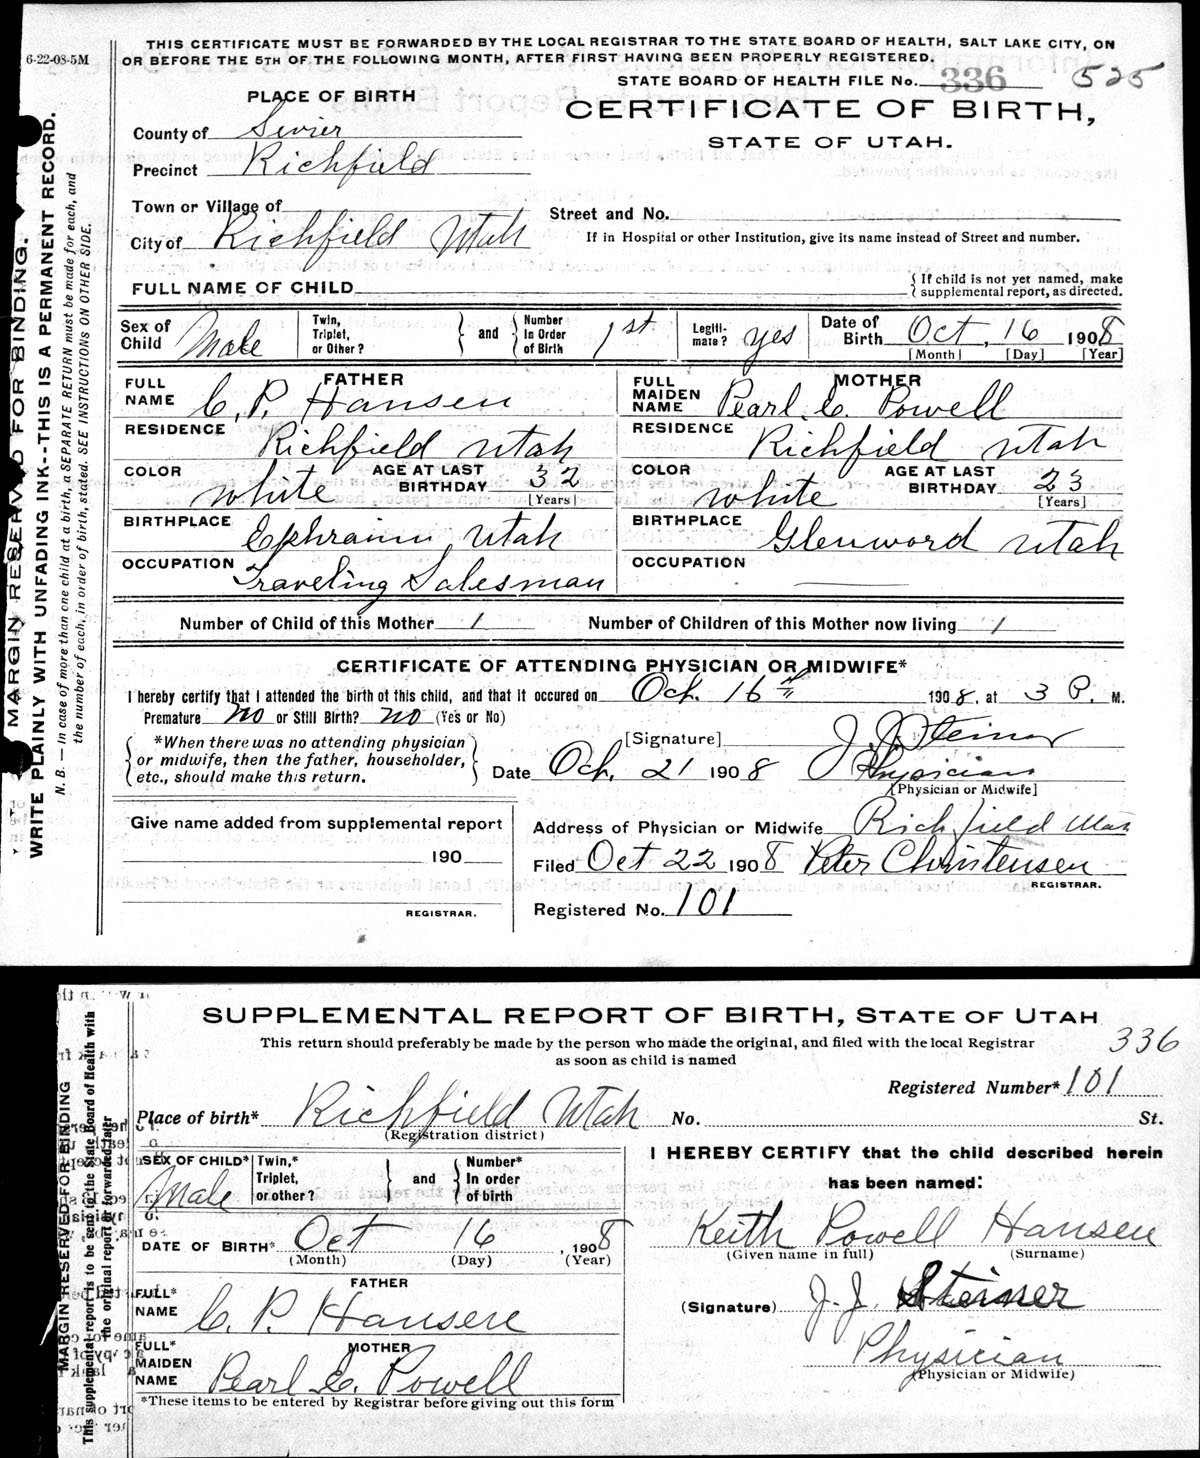 6-22-08-5M
THIS CERTIFICATE MUST BE FORWARDED BY THE LOCAL REGISTRAR TO THE STATE BOARD OF HEALTH, SALT LAKE CITY, ON
OR BEFORE THE 5TH OF THE FOLLOWING MONTH, AFTER FIRST HAVING BEEN PROPERLY REGISTERED.
STATE BOARD OF HEALTH FILE No. 336 525
PLACE OF BIRTH
CERTIFICATE OF BIRTH,
STATE OF UTAH.
County of Sevier
Precinct Richfield
Town or Village of
Street and No.
City of Richfield Utah
If in Hospital or other Institution, give its name instead of Street and number.
FULL NAME OF CHILD
{ If child is not yet named, make
supplemental report, as directed.
Sex of Child Male
Twin, Triplet, or Other? } and { Number In Order of Birth 1st
Legiti-mate? yes
Date of Birth Oct, 16 1908
[Month] [Day] [Year]
FATHER
FULL NAME C. P. Hansen
MOTHER
FULL MAIDEN NAME Pearl E. Powell
RESIDENCE Richfield Utah
RESIDENCE Richfield Utah
COLOR white AGE AT LAST BIRTHDAY 32 [Years]
COLOR white AGE AT LAST BIRTHDAY 23 [Years]
BIRTHPLACE Ephraim, Utah
BIRTHPLACE Glenwood Utah
OCCUPATION Traveling Salesman
OCCUPATION
Number of Child of this Mother 1 Number of Children of this Mother now living 1
CERTIFICATE OF ATTENDING PHYSICIAN OR MIDWIFE*
I hereby certify that I attended the birth of this child, and that it occured on Oct. 16th 1908, at 3 P. M.
Premature no or Still Birth? no (Yes or No)
{ *When there was no attending physician
or midwife, then the father, householder,
etc., should make this return. }
[Signature] J. J. Steiner
Date Oct. 21 1908 Physician
[Physician or Midwife]
Give name added from supplemental report
190
REGISTRAR.
Address of Physician or Midwife Richfield Utah
Filed Oct 22 1908 Peter Christensen
REGISTRAR.
Registered No. 101
MARGIN RESERVED FOR BINDING.
WRITE PLAINLY WITH UNFADING INK--THIS IS A PERMANENT RECORD.
N. B. — In case of more than one child at a birth, a SEPARATE RETURN must be made for each, and
the number of each, in order of birth, stated. SEE INSTRUCTIONS ON OTHER SIDE.
SUPPLEMENTAL REPORT OF BIRTH, STATE OF UTAH
This return should preferably be made by the person who made the original, and filed with the local Registrar
as soon as child is named
336
Registered Number* 101
Place of birth* Richfield Utah No. St.
(Registration district)
SEX OF CHILD* Male
Twin,* Triplet, or other? } and { Number* In order of birth
I HEREBY CERTIFY that the child described herein
has been named:
DATE OF BIRTH* Oct 16, 1908
(Month) (Day) (Year)
Keith Powell Hansen
(Given name in full) (Surname)
FATHER
FULL* NAME C. P. Hansen
(Signature) J. J. Steiner
MOTHER
FULL* MAIDEN NAME Pearl E. Powell
Physician
(Physician or Midwife)
*These items to be entered by Registrar before giving out this form
MARGIN RESERVED FOR BINDING
This supplemental report is to be sent to the State Board of Health with
the original report or forwarded later